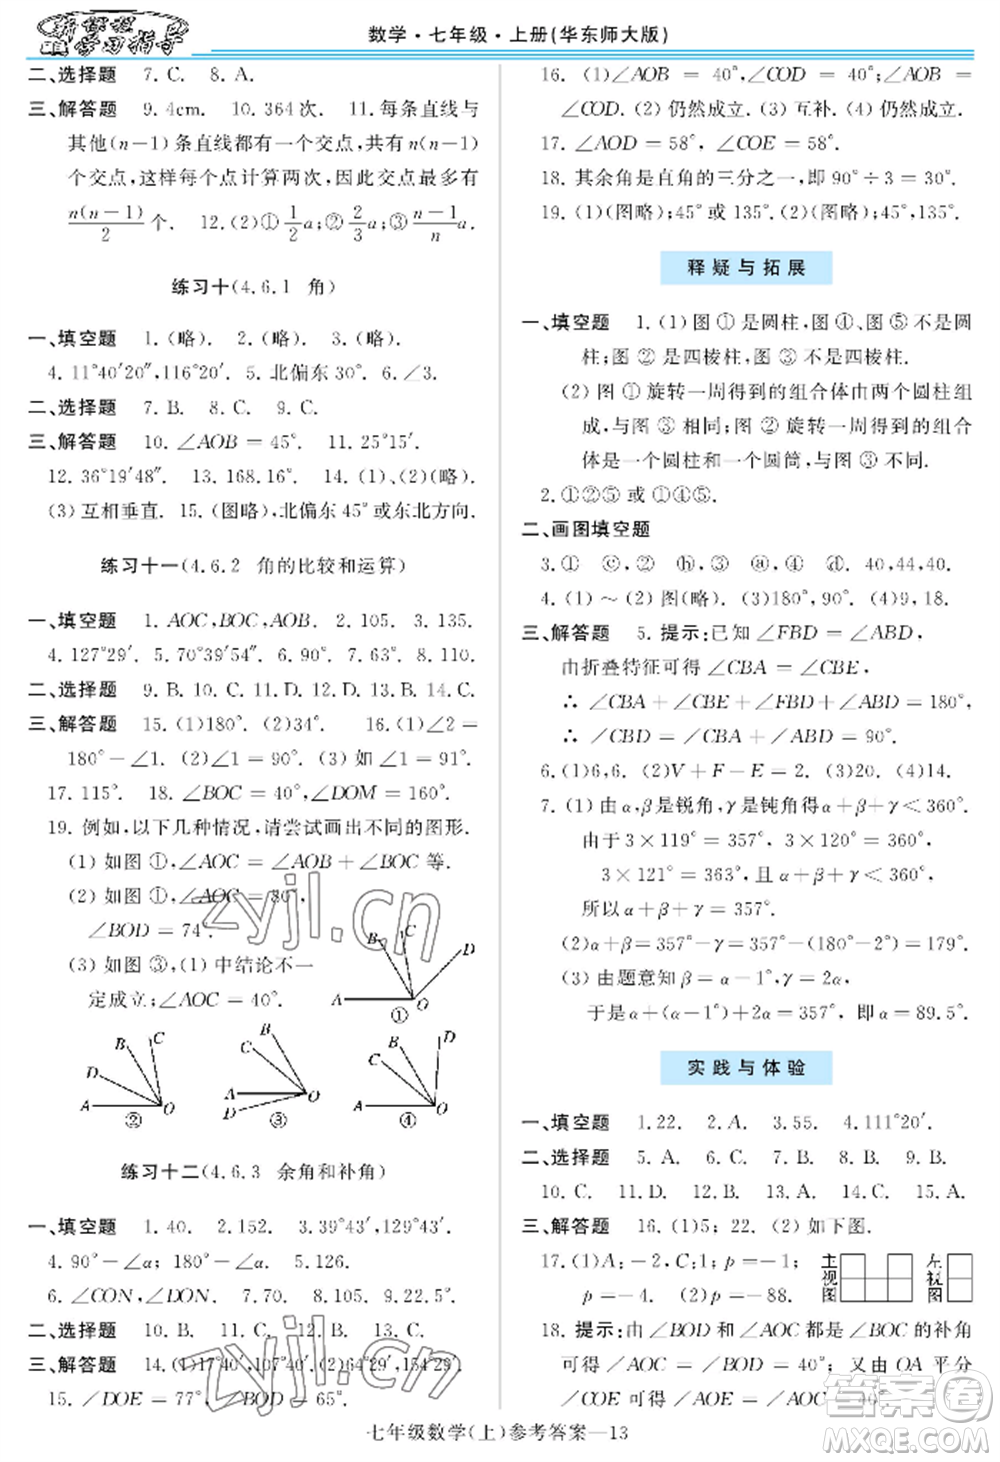 新课程
学习指导
数学·七年级·上册(华东师大版)
二、选择题 7. C. 8. A.
三、解答题 9. 4cm. 10. 364 次. 11. 每条直线与
其他(n－1)条直线都有一个交点,共有n(n－1)
个交点,这样每个点计算两次,因此交点最多有
n(n－1)/2 个. 12. (2)① 1/2 a;② 2/3 a;③ (n－1)/n a.
练习十(4.6.1 角)
一、填空题 1. (略). 2. (略). 3. (略).
4. 11°40′20″,116°20′. 5. 北偏东 30°. 6. ∠3.
二、选择题 7. B. 8. C. 9. C.
三、解答题 10. ∠AOB＝45°. 11. 25°15′.
12. 36°19′48″. 13. 168°. 14. (1)、(2)(略).
(3) 互相垂直. 15. (图略),北偏东 45°或东北方向.
练习十一(4.6.2 角的比较和运算)
一、填空题 1. AOC,BOC,AOB. 2. 105. 3. 135.
4. 127°29′. 5. 70°39′54″. 6. 90°. 7. 63°. 8. 110.
二、选择题 9. B. 10. C. 11. D. 12. B. 13. B. 14. C.
三、解答题 15. (1)180°. (2)34°. 16. (1)∠2＝
180°－∠1. (2)∠1＝90°. (3) 如 ∠1＝91°.
17. 115°. 18. ∠BOC＝40°,∠DOM＝160°.
19. 例如,以下几种情况,请尝试画出不同的图形.
(1) 如图 ①,∠AOC＝∠AOB＋∠BOC 等.
(2) 如图 ①,∠AOC＝80°,
∠BOD＝74°.
(3) 如图 ③,(1) 中结论不一
定成立;∠AOC＝40°.
B C D A O ①
B C D A O ②
B C A D O ③
D C B A O ④
练习十二(4.6.3 余角和补角)
一、填空题 1. 40. 2. 152. 3. 39°43′,129°43′.
4. 90°－∠α; 180°－∠α. 5. 126.
6. ∠CON,∠DON. 7. 70. 8. 105. 9. 22.5°.
二、选择题 10. B. 11. B. 12. C. 13. C.
三、解答题 14. (1)17°40′,107°40′.(2)64°29′,154°29′.
15. ∠DOE＝77°,∠BOD＝65°.
16. (1)∠AOB＝40°,∠COD＝40°;∠AOB＝
∠COD. (2) 仍然成立. (3) 互补. (4) 仍然成立.
17. ∠AOD＝58°,∠COE＝58°.
18. 其余角是直角的三分之一,即 90°÷3＝30°.
19. (1)(图略);45°或 135°. (2)(图略);45°,135°.
释疑与拓展
一、填空题 1. (1) 图 ① 是圆柱,图 ④、图 ⑤ 不是圆
柱;图 ② 是四棱柱,图 ③ 不是四棱柱.
(2) 图 ① 旋转一周得到的组合体由两个圆柱组
成,与图 ③ 相同;图 ② 旋转一周得到的组合
体是一个圆柱和一个圆筒,与图 ③ 不同.
2. ①②⑤ 或 ①④⑤.
二、画图填空题
3. ① ⓒ,② ⓑ,③ ⓐ,④ ⓓ. 40,44,40.
4. (1) ～ (2) 图(略). (3)180°,90°. (4)9,18.
三、解答题 5. 提示:已知 ∠FBD＝∠ABD,
由折叠特征可得 ∠CBA＝∠CBE,
∴ ∠CBA＋∠CBE＋∠FBD＋∠ABD＝180°,
∴ ∠CBD＝∠CBA＋∠ABD＝90°.
6. (1)6,6. (2)V＋F－E＝2. (3)20. (4)14.
7. (1) 由 α,β 是锐角,γ 是钝角得 α＋β＋γ＜360°.
由于 3×119°＝357°, 3×120°＝360°,
3×121°＝363°,且 α＋β＋γ＜360°,
所以 α＋β＋γ＝357°.
(2)α＋β＝357°－γ＝357°－(180°－2°)＝179°.
(3) 由题意知 β＝α－1°,γ＝178°,
于是 α＋(α－1°)＋178°＝357°,即 α＝89.5°.
实践与体验
一、填空题 1. 22. 2. A. 3. 55. 4. 111°20′.
二、选择题 5. A. 6. D. 7. D. 8. B. 9. B.
10. C. 11. D. 12. B. 13. C. 14. C. 15. A.
三、解答题 16. (1)5; 22. (2) 如下图.
主视图 左视图
17. (1)A:－2,C:1; p＝－1;
p＝－4. (2)p＝－88.
18. 提示:由 ∠BOD 和 ∠AOC 都是 ∠BOC 的补角
可得 ∠AOC＝∠BOD＝40°. 又由 OA 平分
∠COE 可得 ∠AOE＝∠AOC＝40°.
七年级数学(上)参考答案—13
zyjl.cn
zyjl.cn
答案圈